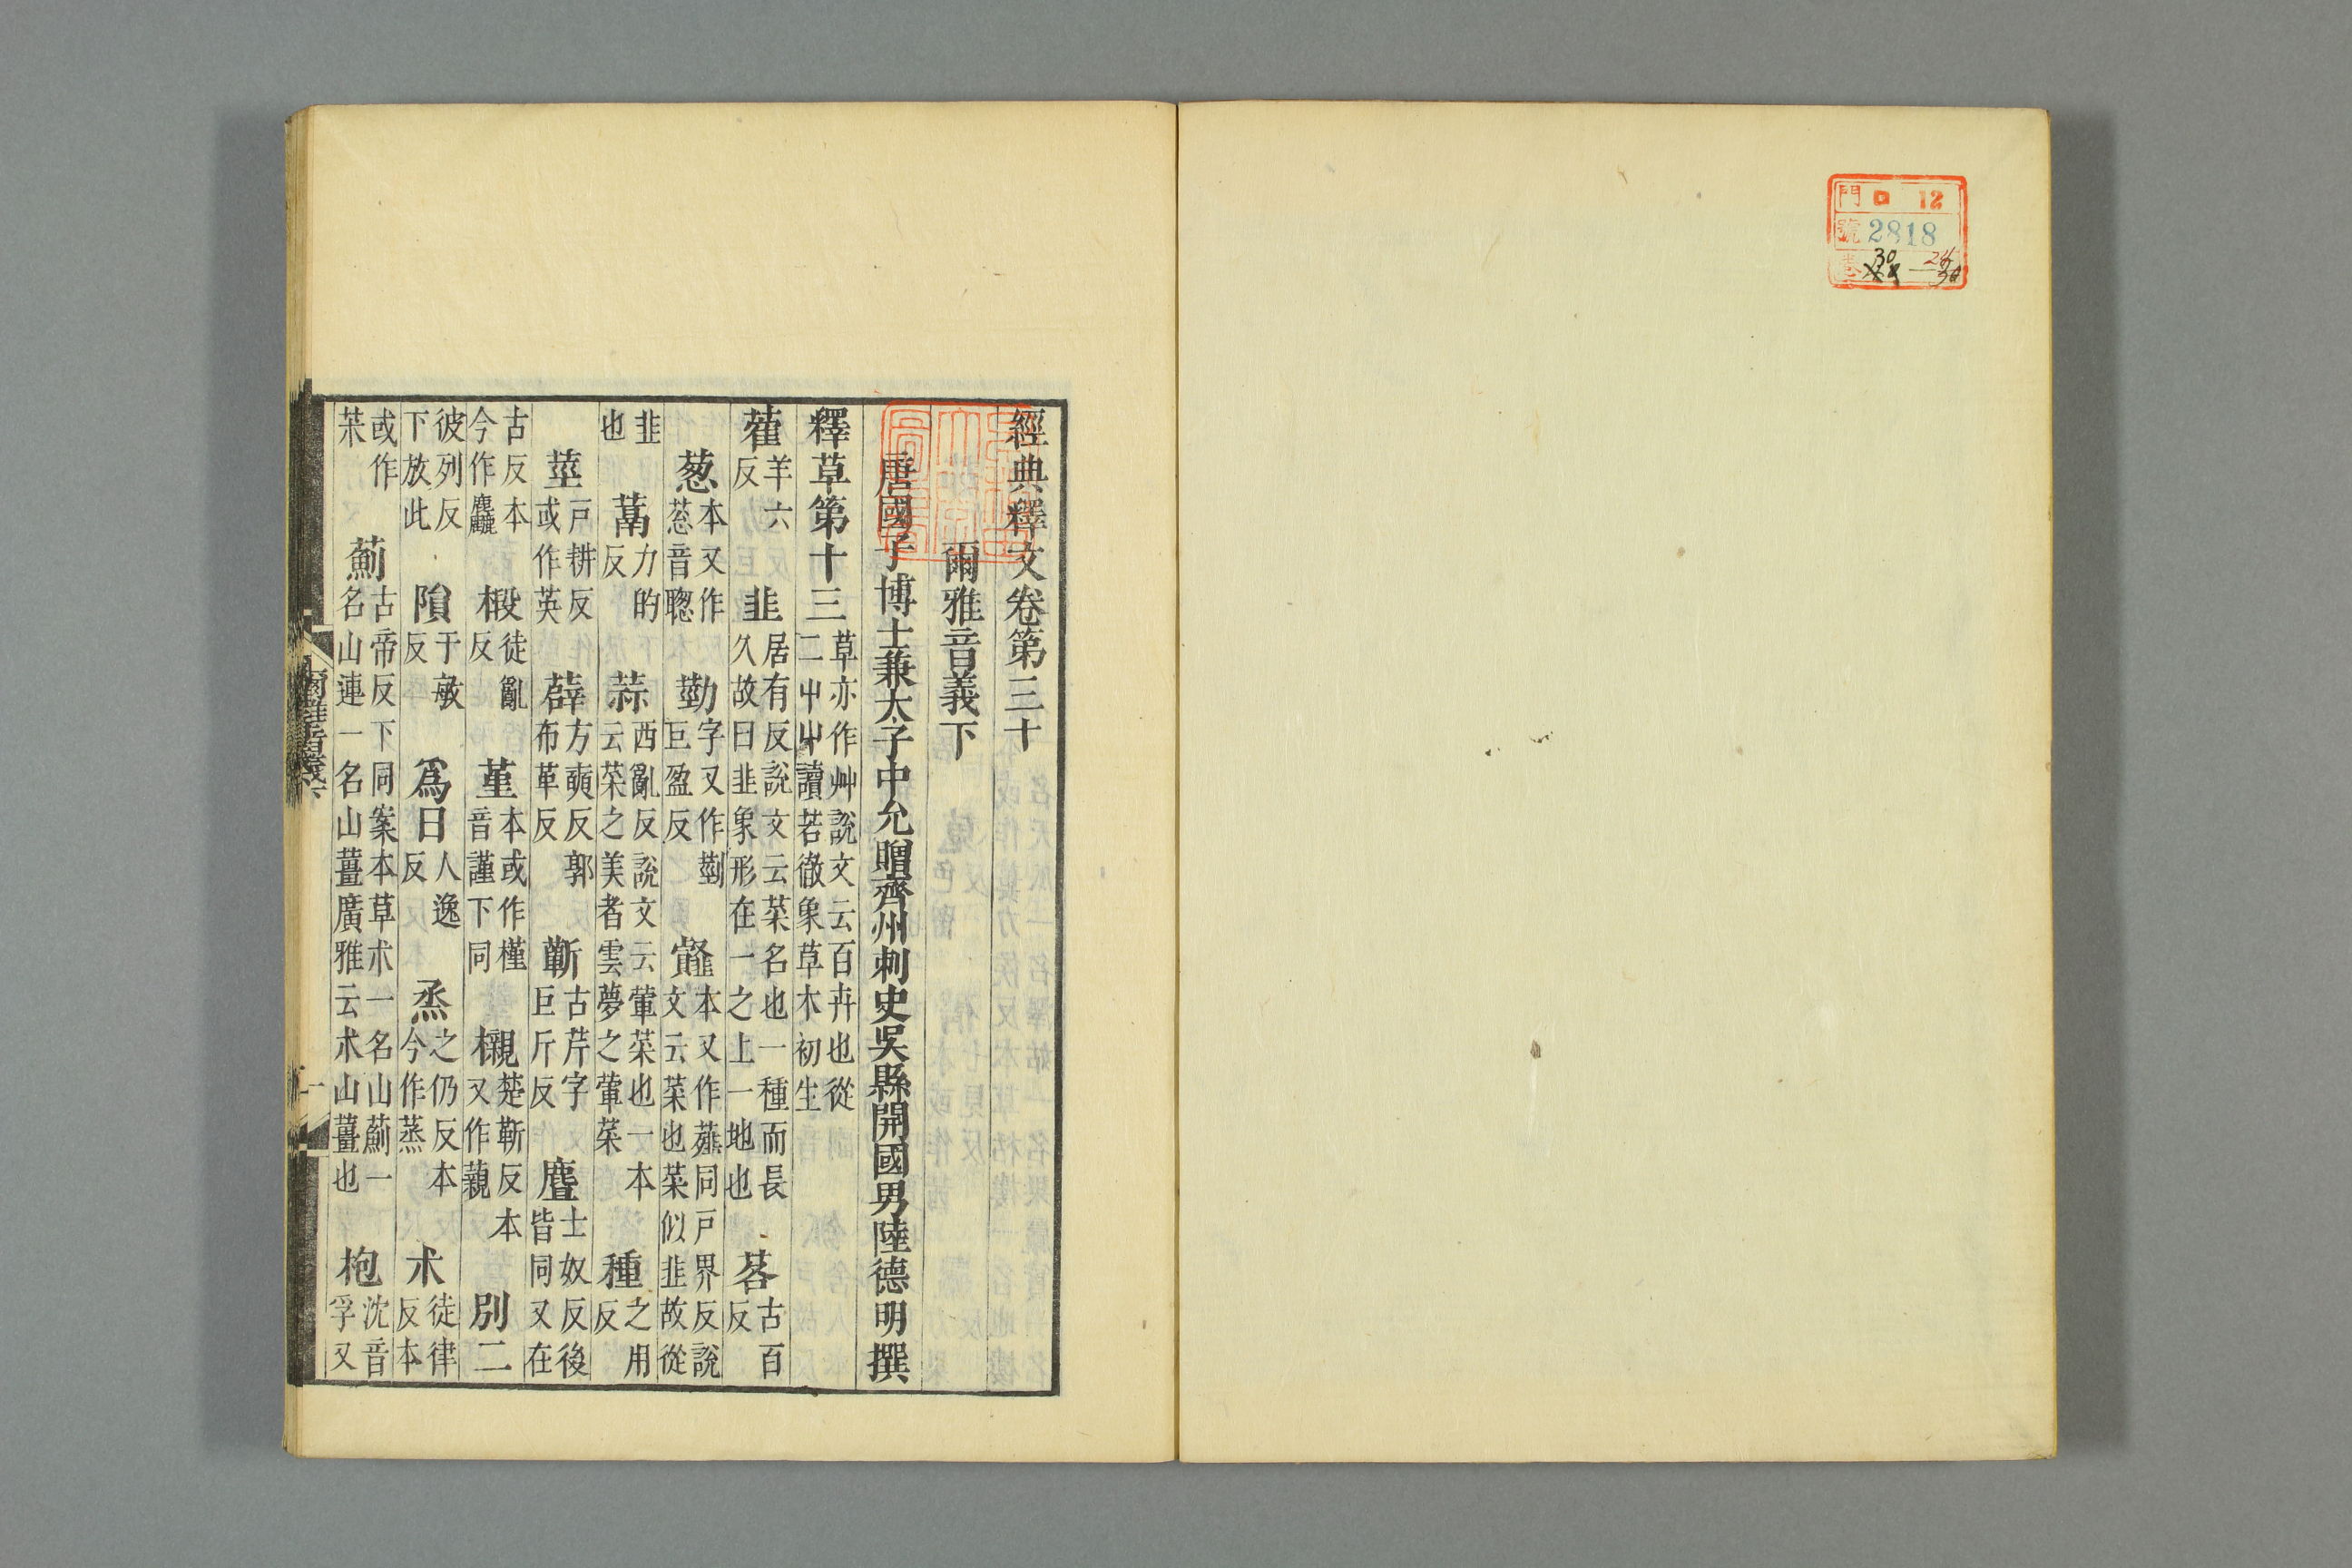 門 ロ 12
號 2818
30
經典釋文卷第三十
爾雅音義下
唐國子博士兼太子中允贈齊州刺史吳縣開國男陸德明撰
釋草第十三 草亦作艸說文云百卉也從
二屮屮讀若徹象草木初生
蒮 羊六
反 韭 居有反說文云菜名也一種而長
久故曰韭象形在一之上一地也 茖 古百
反
葱 本又作
蔥音聰 葝 字又作勍
巨盈反 䪥 本又作薤同戶界反說
文云菜也菜似韭故從
韭
也 蒚 力的
反 蒜 西亂反說文云葷菜也一本
云菜之美者雲夢之葷菜 種 之用
反
莖 戶耕反
或作英 薜 方奭反郭
布革反 蘄 古芹字
巨斤反 麆 士奴反後
皆同又在
古反本
今作麤 椴 徒亂
反 堇 本或作槿
音謹下同 櫬 楚靳反本
又作藽 別二
彼列反
下放此 隕 于敏
反 爲日 人逸
反 烝 之仍反本
今作蒸 朮 徒律
反本
或作
茱 薊 古帝反下同案本草朮一名山薊一
名山連一名山薑廣雅云朮山薑也 枹 沈音
孚又
爾雅音義下
一